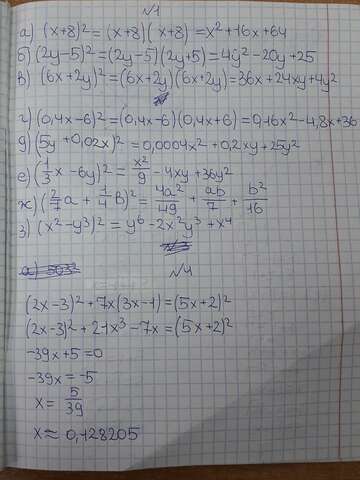 №1
а) (x+8)² = (x+8)(x+8) = x²+16x+64
б) (2y-5)² = (2y-5)(2y+5) = 4y²-20y+25
в) (6x+2y)² = (6x+2y)(6x+2y) = 36x+24xy+4y²
г) (0,4x-6)² = (0,4x-6)(0,4x+6) = 0,16x²-4,8x+36
д) (5y+0,02x)² = 0,0004x²+0,2xy+25y²
е) (1/3x - 6y)² = x²/9 - 4xy + 36y²
ж) (2/7a + 1/4b)² = 4a²/49 + ab/7 + b²/16
з) (x²-y³)² = y⁶-2x²y³+x⁴
№4
(2x-3)²+7x(3x-1) = (5x+2)²
(2x-3)²+21x³-7x = (5x+2)²
-39x+5=0
-39x=-5
x = 5/39
x ≈ 0,128205